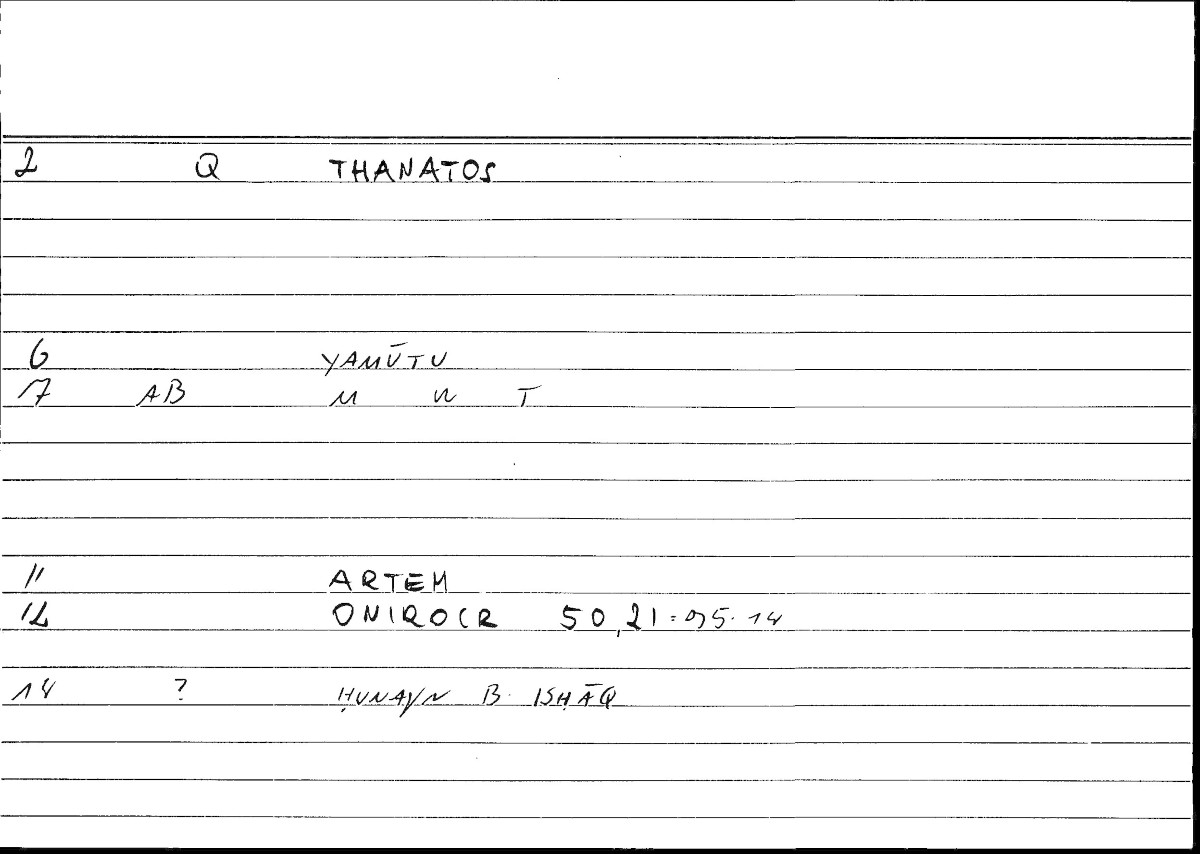 2 Q THANATOS
6 YAMŪTU
17 AB M W T
11 ARTEM
12 ONIROCR 50,21 = 95.14
14 ? ḤUNAYN B. ISḤĀQ